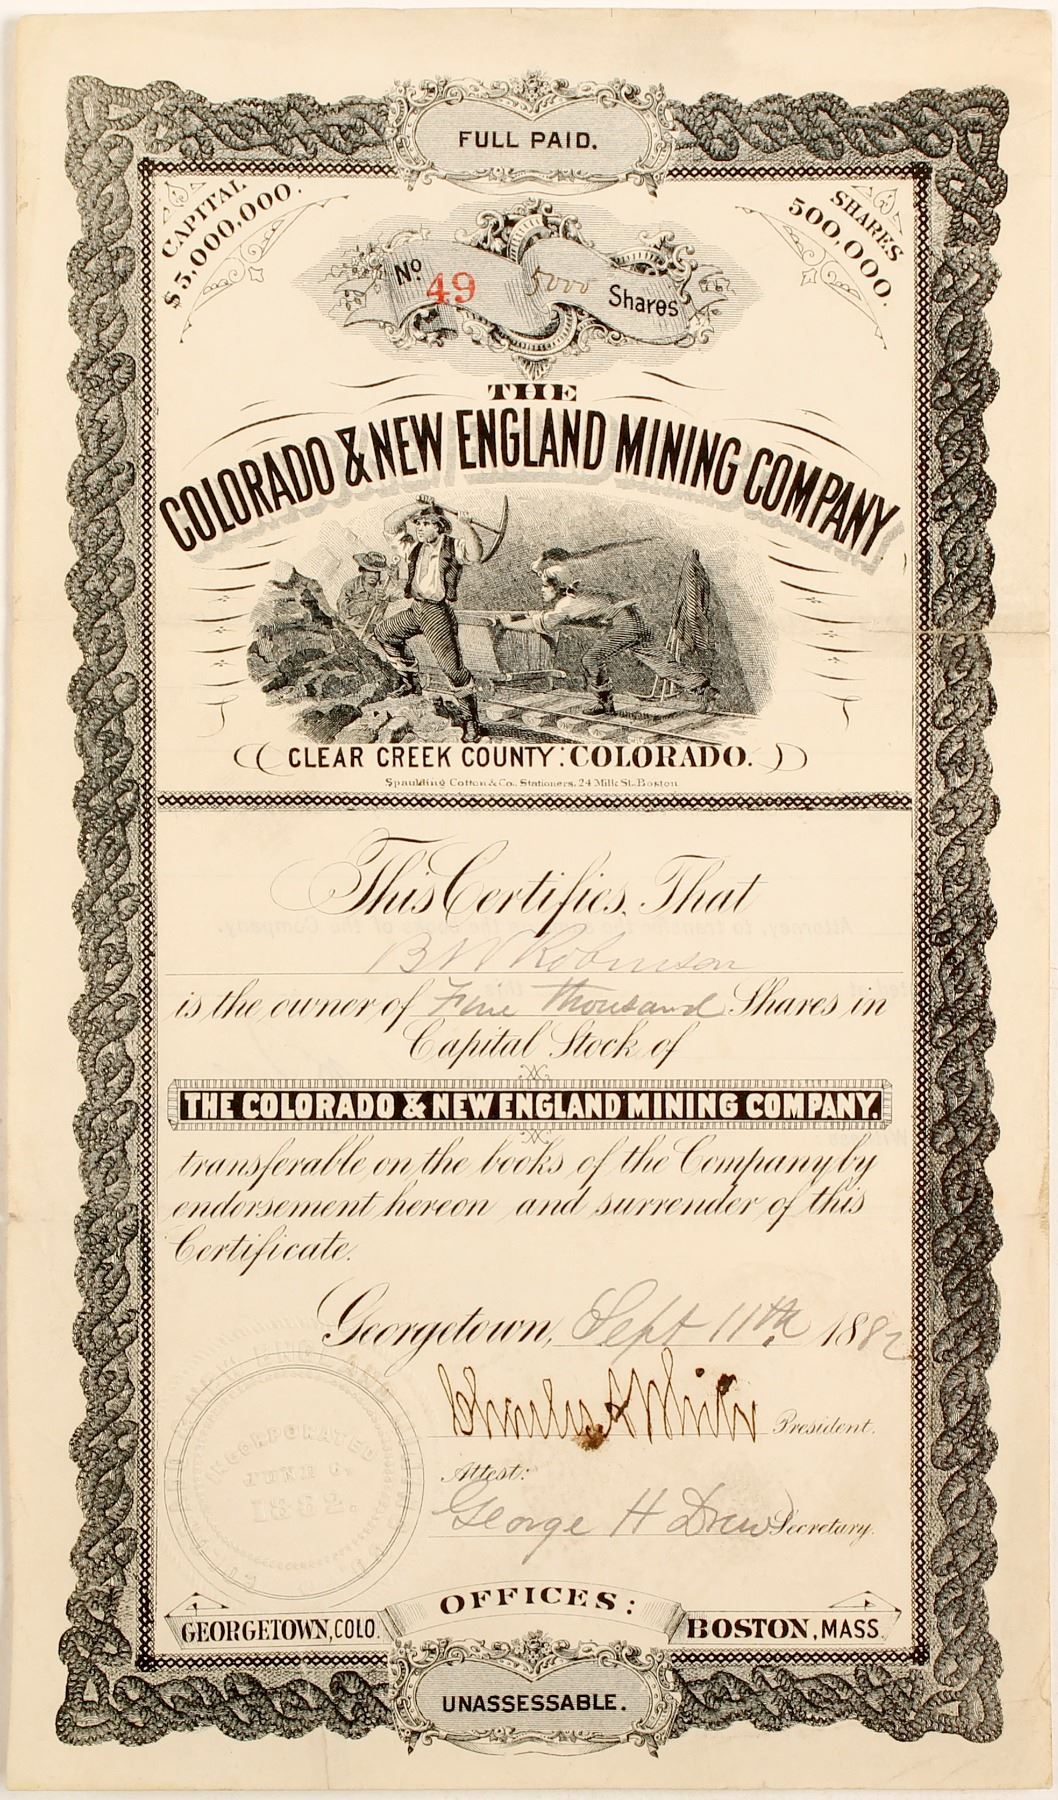 FULL PAID.
CAPITAL
$5,000,000.
SHARES
500,000.
No 49 5000 Shares
THE
COLORADO & NEW ENGLAND MINING COMPANY
CLEAR CREEK COUNTY: COLORADO.
Spaulding Cotton & Co. Stationers, 24 Milk St. Boston
This Certifies, That
B W Robinson
is the owner of Five Thousand Shares in
Capital Stock of
THE COLORADO & NEW ENGLAND MINING COMPANY.
transferable on the books of the Company by
endorsement hereon and surrender of this
Certificate.
Georgetown, Sept 11th 1882
Charles A President.
Attest:
George H Drew Secretary.
INCORPORATED
JUNE 6,
1882.
OFFICES:
GEORGETOWN, COLO.
BOSTON, MASS.
UNASSESSABLE.